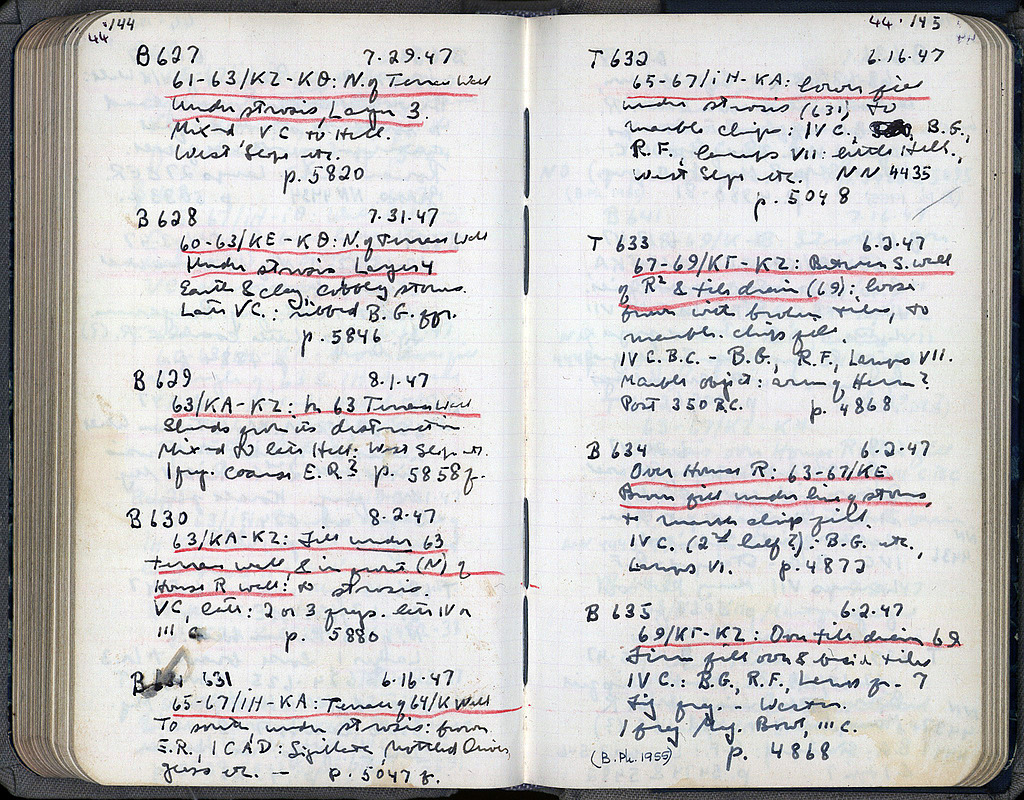 44 '144
B 627 7.29.47
61-63/KZ-KΘ: N. of Terrace Wall
under strosis, Layer 3.
Mixed VC to Hell.
West Slope etc.
p. 5820
B 628 7.31.47
60-63/KE-KΘ: N. of Terrace Wall
Under strosis Layer 4
Earth & clay, cobbly stones.
Late VC.: ribbed B.G. 
p. 5846
B 629 8.1.47
63/KA-KZ: In 63 Terrace Wall
Sherds from its destruction
Mixed to late Hell: West Slope etc.
1 frag. coarse E.R.? p. 5858 f.
B 630 8.2.47
63/KA-KZ: Fill under 63
terrace wall & in front (N) of
House R wall: to strosis.
VC, late: 2 or 3 frags. late IV or
III, C p. 5880
B 631 6.16.47
65-67/ΙΗ-KA: Terrace of 64/K Wall
To south, under strosis: brown
E.R., I C AD: Sigillata, 
glass etc. -- p. 5047 f.
44 '145
T 632 6.16.47
65-67/ΙΗ-KA: lower fill
under strosis (631), to
marble chips: IV C., B.G.,
R.F., lamps VII: little Hell.,
West Slope etc. NN 4435
p. 5048
T 633 6.2.47
67-69/KΓ-KZ: Between S. wall
of R² & tile drain (69): loose
brown with broken tiles, to
marble chips fill.
IV C.B.C. - B.G., R.F., Lamps VII.
Marble object: arm of Herm?
Post 350 B.C. p. 4868
B 634 6.2.47
Over House R: 63-67/KE
Brown fill under line of stones
+ marble chip fill
IV C. (2nd half?): B.G. etc.,
Lamps VI. p. 4872
B 635 6.2.47
69/KΓ-KZ: Over tile drain 69
Firm fill over & beside tiles
IV C.: B.G., R.F., Lamps fr. 7
Fig frag. --
1 frag Meg. Bowl, III C.
(B. Ph. 1955) p. 4868